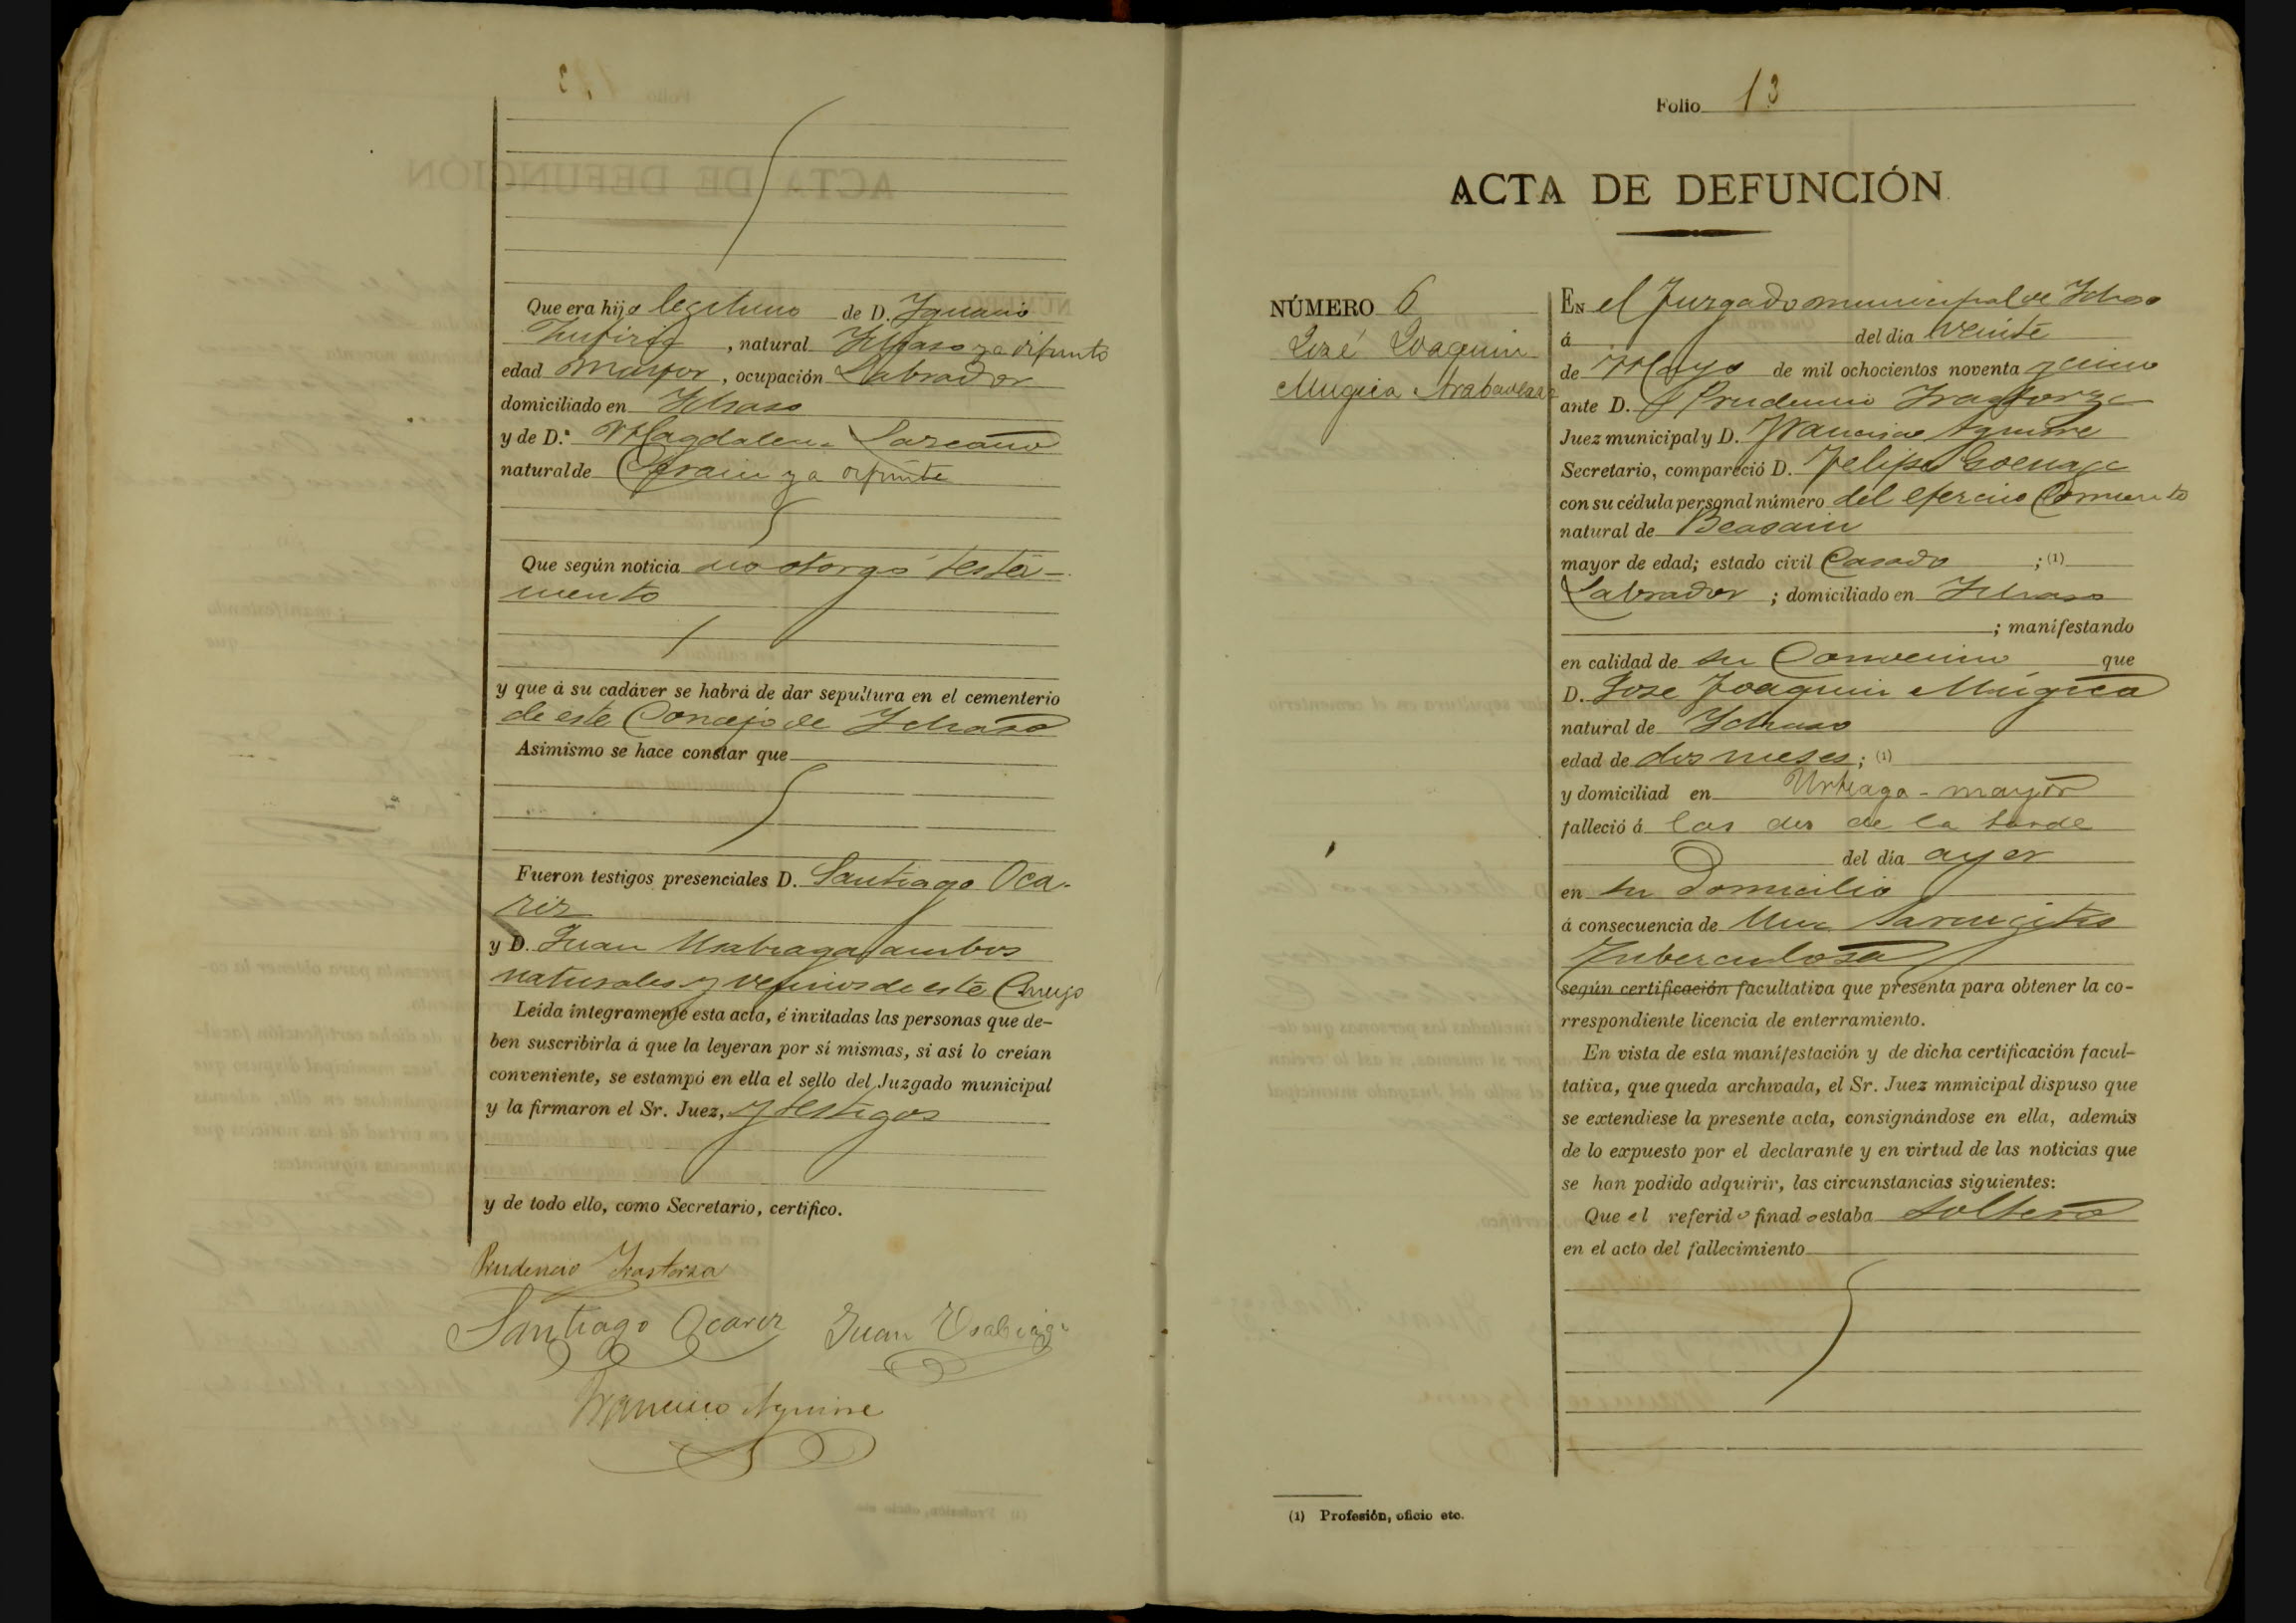 Que era hijo legitimo de D. Ignacio
, natural Ichaso ya difunto
edad mayor, ocupación Labrador
domiciliado en Ichaso
y de D.ª Magdalena Larcano
natural de ya difunta
Que según noticia no otorgó testa-
mento
y que á su cadáver se habrá de dar sepultura en el cementerio
de este Concejo de Ichaso
Asimismo se hace constar que
Fueron testigos presenciales D. Santiago Oca-
riz
y D. Juan Usabiaga ambos
naturales y vecinos de este Concejo
Leída íntegramente esta acta, é invitadas las personas que de-
ben suscribirla á que la leyeran por sí mismas, si así lo creían
conveniente, se estampó en ella el sello del Juzgado municipal
y la firmaron el Sr. Juez, y testigos
y de todo ello, como Secretario, certifico.
Prudencio Irastorza
Santiago Ocariz Juan Usabiaga
Francisco Aguirre
Folio 13
ACTA DE DEFUNCIÓN
NÚMERO 6
José Joaquin
Mugica
EN el Juzgado municipal de Ichaso
á del dia veinte
de Mayo de mil ochocientos noventa y cinco
ante D. Prudencio Irastorza
Juez municipal y D. Francisco Aguirre
Secretario, compareció D. Felipe Goenaga
con su cédula personal número del ejercicio Corriente
natural de Beasain
mayor de edad; estado civil Casado ; (1)
Labrador ; domiciliado en Ichaso
; manifestando
en calidad de su Convecino que
D. Jose Joaquin Múgica
natural de Ichaso
edad de dos meses; (1)
y domiciliad en Urteaga-mayor
falleció á las dos de la tarde
del día ayer
en su domicilio
á consecuencia de Una Laringitis
Tuberculosa
según certificación facultativa que presenta para obtener la co-
rrespondiente licencia de enterramiento.
En vista de esta manifestación y de dicha certificación facul-
tativa, que queda archivada, el Sr. Juez municipal dispuso que
se extendiese la presente acta, consignándose en ella, además
de lo expuesto por el declarante y en virtud de las noticias que
se han podido adquirir, las circunstancias siguientes:
Que el referido finado estaba soltero
en el acto del fallecimiento
(1) Profesión, oficio etc.